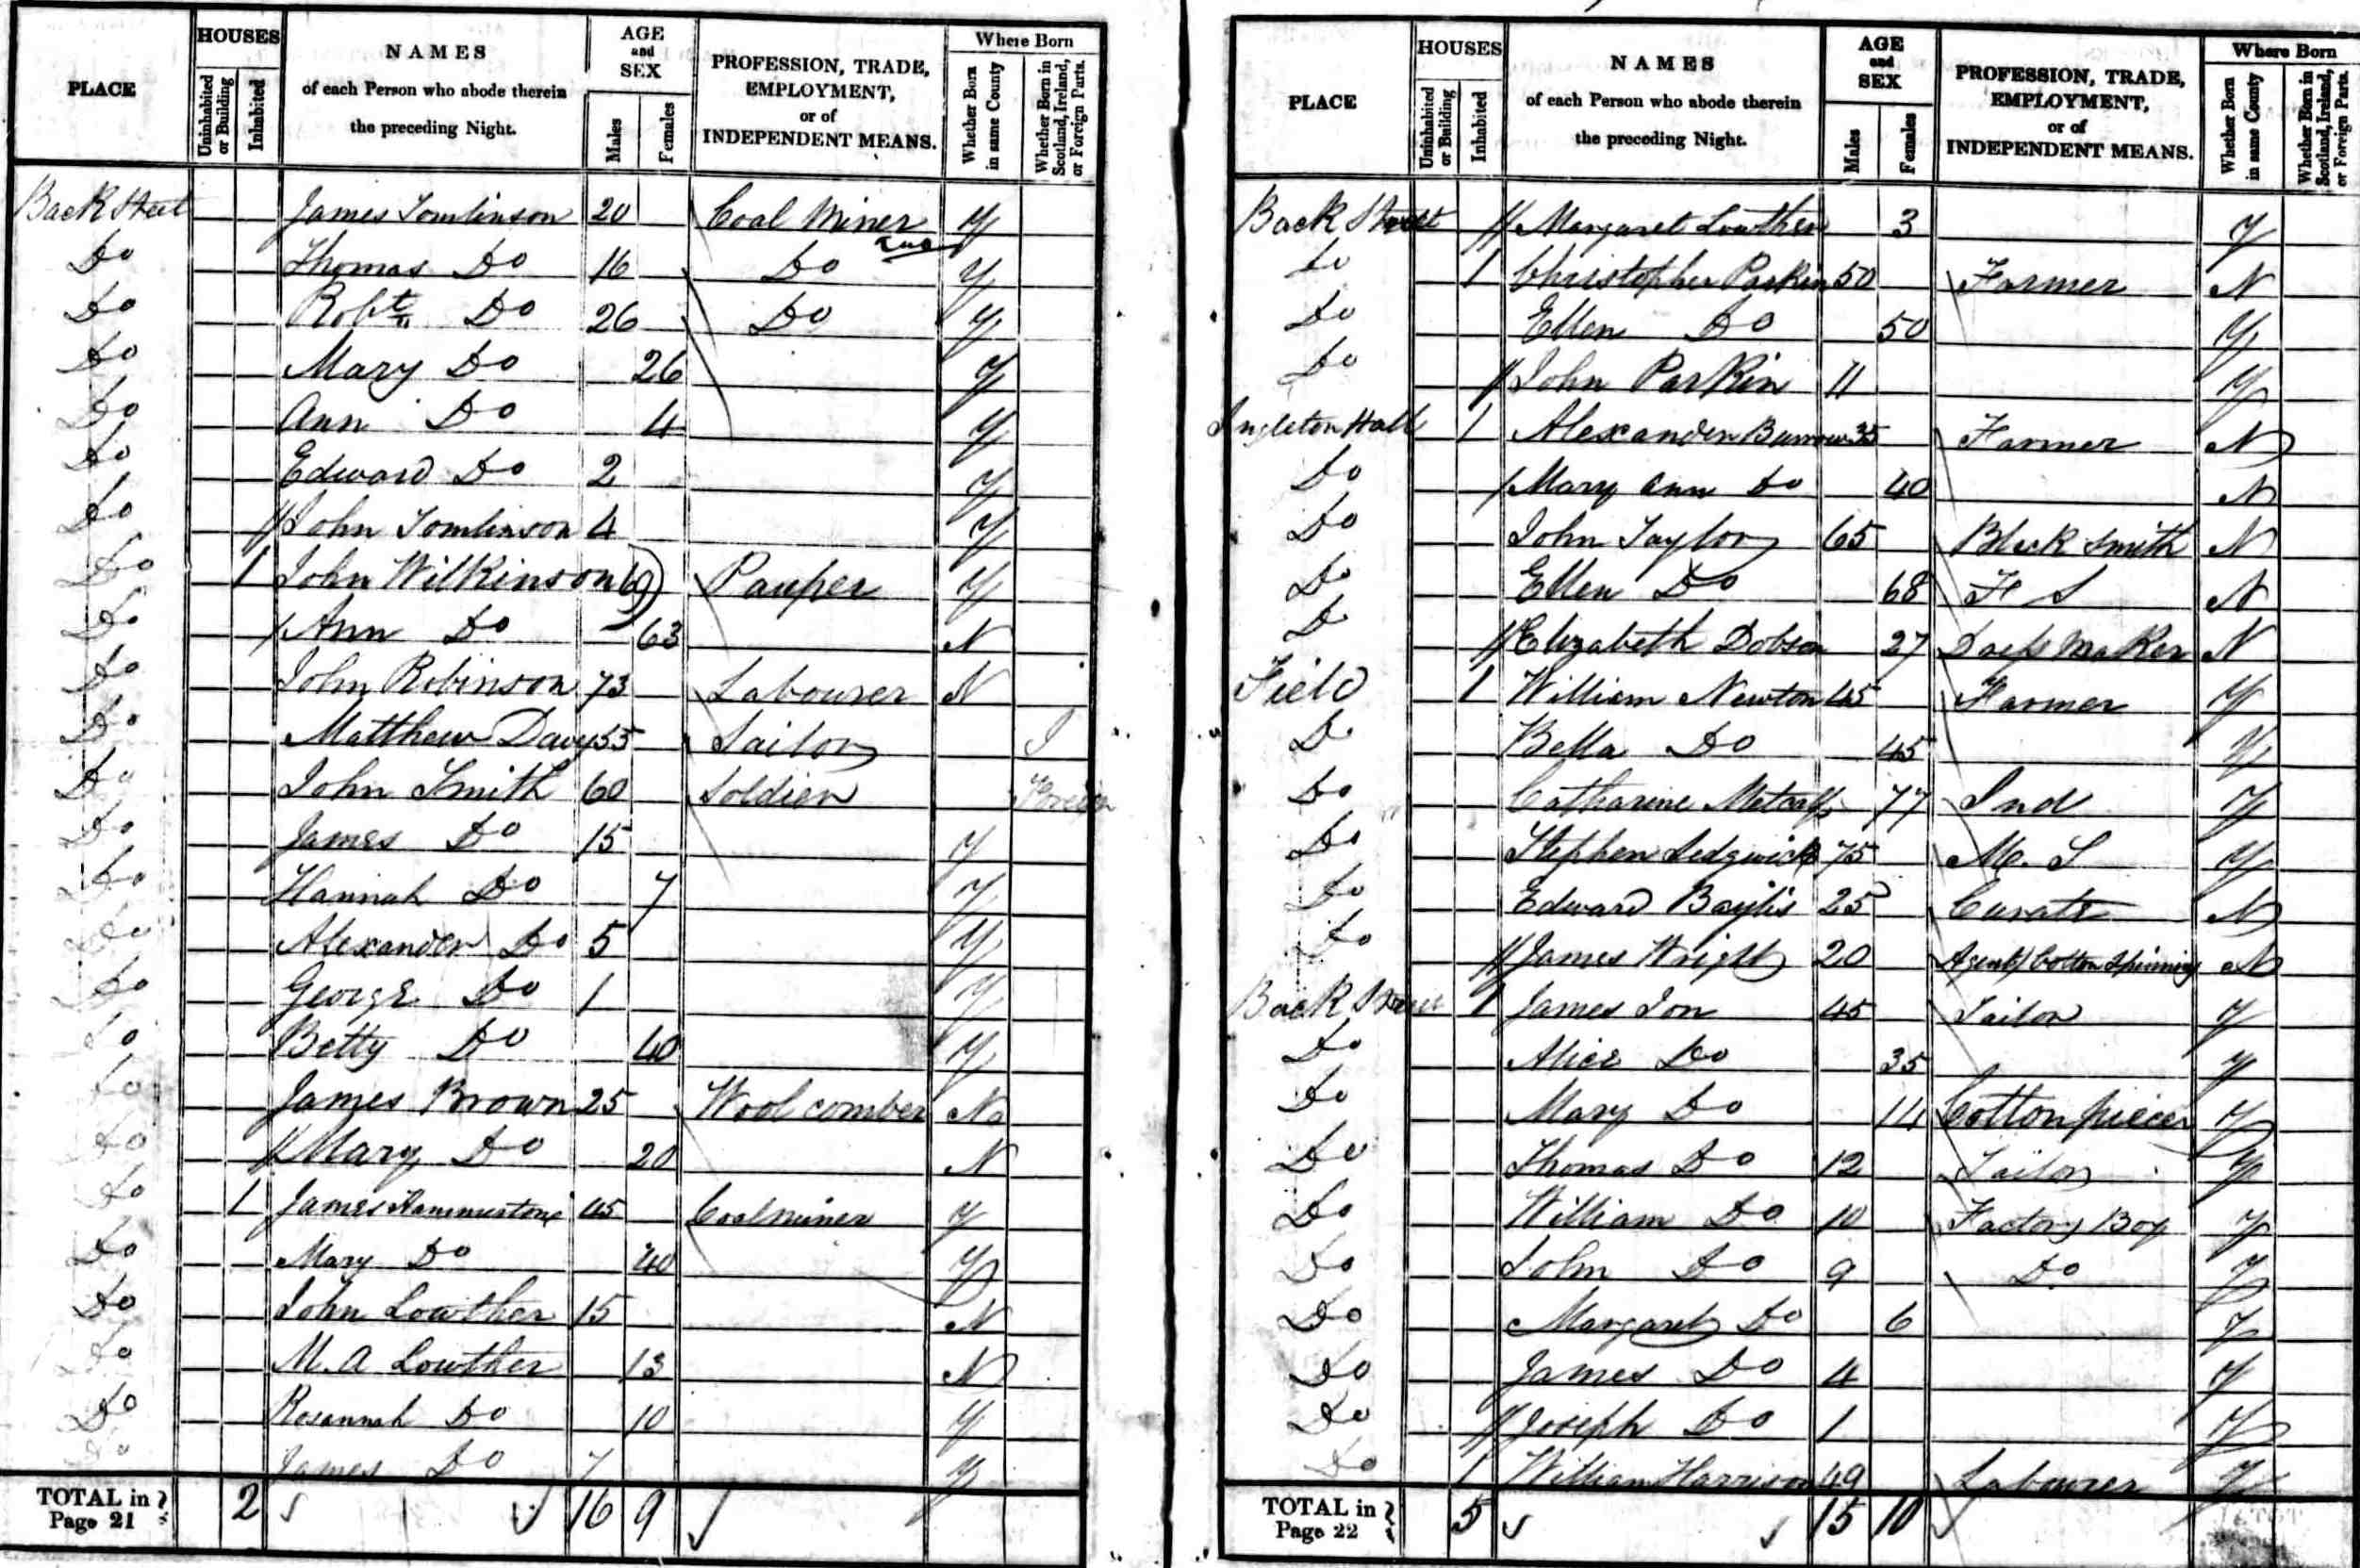 PLACE HOUSES Uninhabited or Building Inhabited NAMES of each Person who abode therein the preceding Night. AGE and SEX Males Females PROFESSION, TRADE, EMPLOYMENT, or of INDEPENDENT MEANS. Where Born Whether Born in same County Whether Born in Scotland, Ireland, or Foreign Parts.
Back Street James Tomlinson 20 Coal Miner Y
Do Thomas Do 16 Do Y
Do Robt Do 26 Do Y
Do Mary Do 26 Y
Do Ann Do 4 Y
Do Edward Do 2 Y
Do // John Tomlinson 4 Y
Do 1 John Wilkinson Pauper Y
Do / Ann Do 63 N
Do John Robinson 73 Labourer N
Do Matthew Davy 55 Sailor I
Do John Smith 60 Soldier Foreign
Do James Do 15 Y
Do Hannah Do 7 Y
Do Alexander Do 5 Y
Do George Do 1 Y
Do Betty Do 40 Y
Do James Brown 25 Wool comber No
Do // Mary Do 20 N
Do 1 James Hammerton 45 Coal miner Y
Do Mary Do 40 Y
Do John Lowther 15 N
Do M. A Lowther 13 N
Do Rosannah Do 10 Y
Do James Do 7 Y
TOTAL in Page 21 2 16 9
PLACE HOUSES Uninhabited or Building Inhabited NAMES of each Person who abode therein the preceding Night. AGE and SEX Males Females PROFESSION, TRADE, EMPLOYMENT, or of INDEPENDENT MEANS. Where Born Whether Born in same County Whether Born in Scotland, Ireland, or Foreign Parts.
Back Street // Margaret Lowther 3 Y
Do 1 Christopher Parkin 50 Farmer N
Do Ellen Do 50 Y
Do // John Parkin 11 Y
Ingleton Hall 1 Alexander Burrow 35 Farmer N
Do / Mary Ann Do 40 N
Do John Taylor 65 Black Smith N
Do Ellen Do 68 F S N
Do // Elizabeth Dobson 27 Dress Maker N
Field 1 William Newton 45 Farmer Y
Do Bella Do 45 Y
Do Catharine Metcalf 77 Ind Y
Do Stephen Sedgwick 75 M. S Y
Do Edward Baylis 25 Curate N
Do // James Wright 20 Agent Cotton Spinning N
Back Street 1 James Ion 45 Tailor Y
Do Alice Do 35 Y
Do Mary Do 14 Cotton piecer Y
Do Thomas Do 12 Tailor Y
Do William Do 10 Factory Boy Y
Do John Do 9 Do Y
Do Margaret Do 6 Y
Do James Do 4 Y
Do // Joseph Do 1 Y
Do 1 William Harrison 49 Labourer Y
TOTAL in Page 22 5 15 10